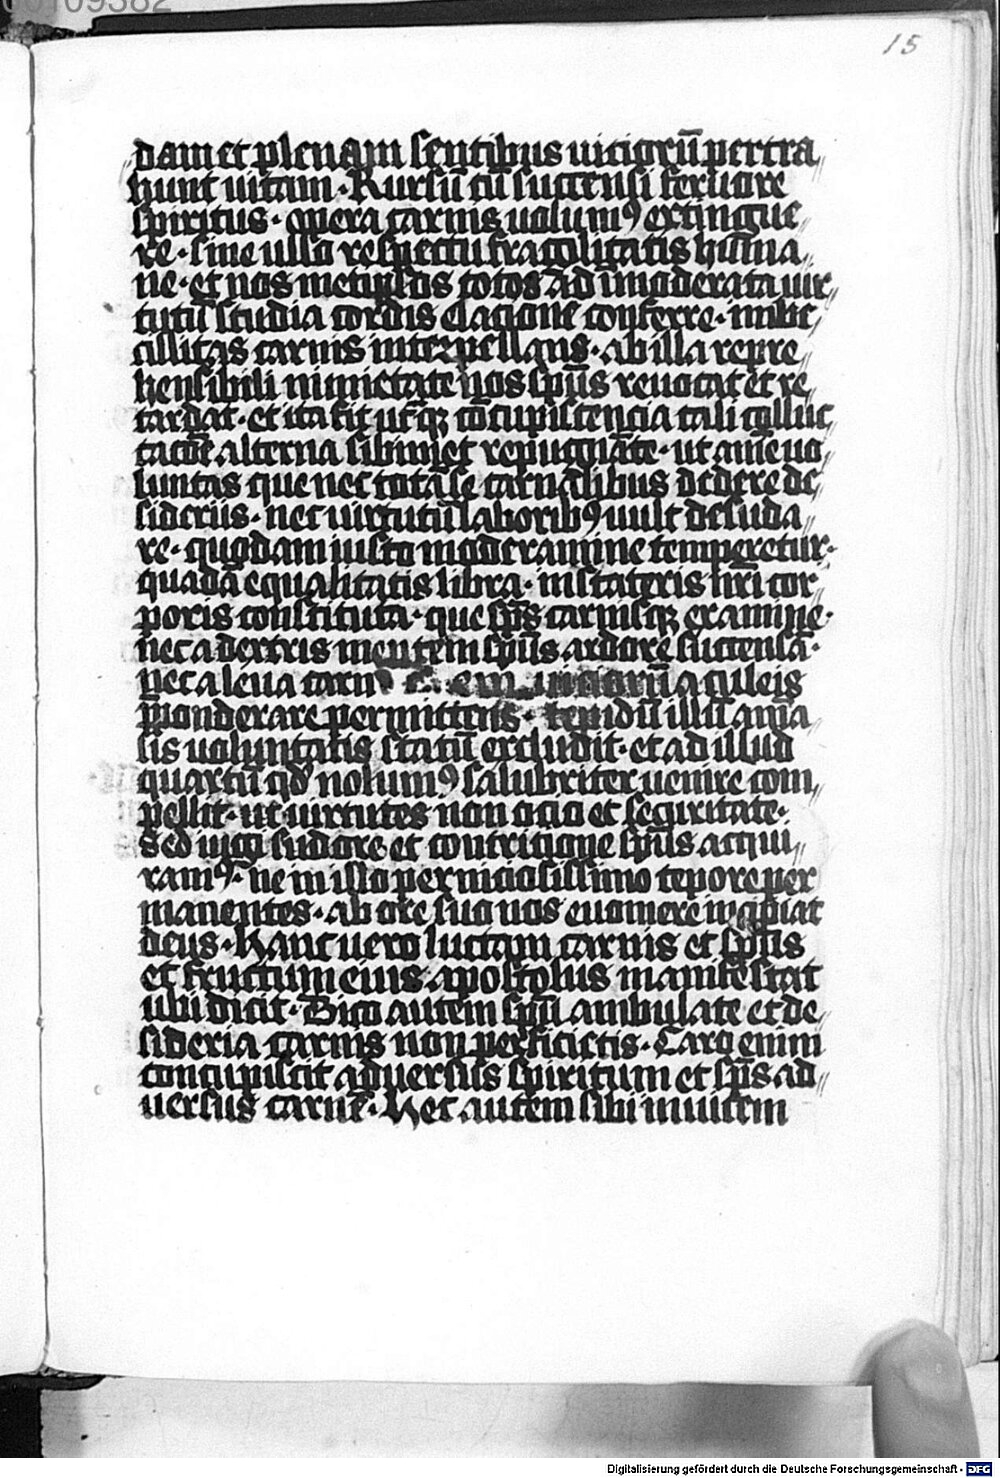 00109382
15
dam et plenam sentibus uicioru̅ pertra„
hunt uitam · Rursu̅ cu̅ succensi feruore
spiritus · opera carnis uolumꝰ extingue„
re · sine ullo respectu fragilitatis huma̅„
ne · et nos metip̅sos totos ad i̅moderata uir„
tutu̅ studia cordis elacione conferre · imbe„
cillitas carnis interpellans · ab illa repre„
hensibili nimietate nos sp̅us reuocat et re„
tardat · et ita fit ut̅qꝫ co̅cupiscencia tali colluc„
tac̅oe alterna sibimet repugna̅te · ut a̅me uo„
luntas que nec tota̅ se carnalibus dedere de„
sideriis · nec uirtutu̅ laboribꝰ uult desuda„
re · quodam iusto moderamine temperetur ·
quada̅ equalitatis libra · in stateris nr̅i cor„
poris constituta · que sp̅s carnisqꝫ examine ·
nec a dextris mentem sp̅us ardore succensa̅ ·
nec a leua carn uicioru̅ aculeis
p̅ponderare permittens · illu̅
sis uoluntatis statu̅ excludit · et ad illud
quartu̅ qd̅ nolumꝰ salubriter uenire com„
pellit · ut uirtutes non ocio et securitate ·
sed iugi sudore et contricione sp̅us acqui„
ramꝰ · ne in isto perniciosissimo tepore per
manentes · ab ore suo nos euomere incipiat
deus · Hanc uero luctam carnis et sp̅us
et fructum eius apostolus manifestat
ubi dicit · Dico autem sp̅u ambulate et de„
sideria carnis non perficietis · Caro enim
concupiscit aduersus spiritum et sp̅s ad„
uersus carne̅ · Hec autem sibi inuicem
Digitalisierung gefördert durch die Deutsche Forschungsgemeinschaft - DFG